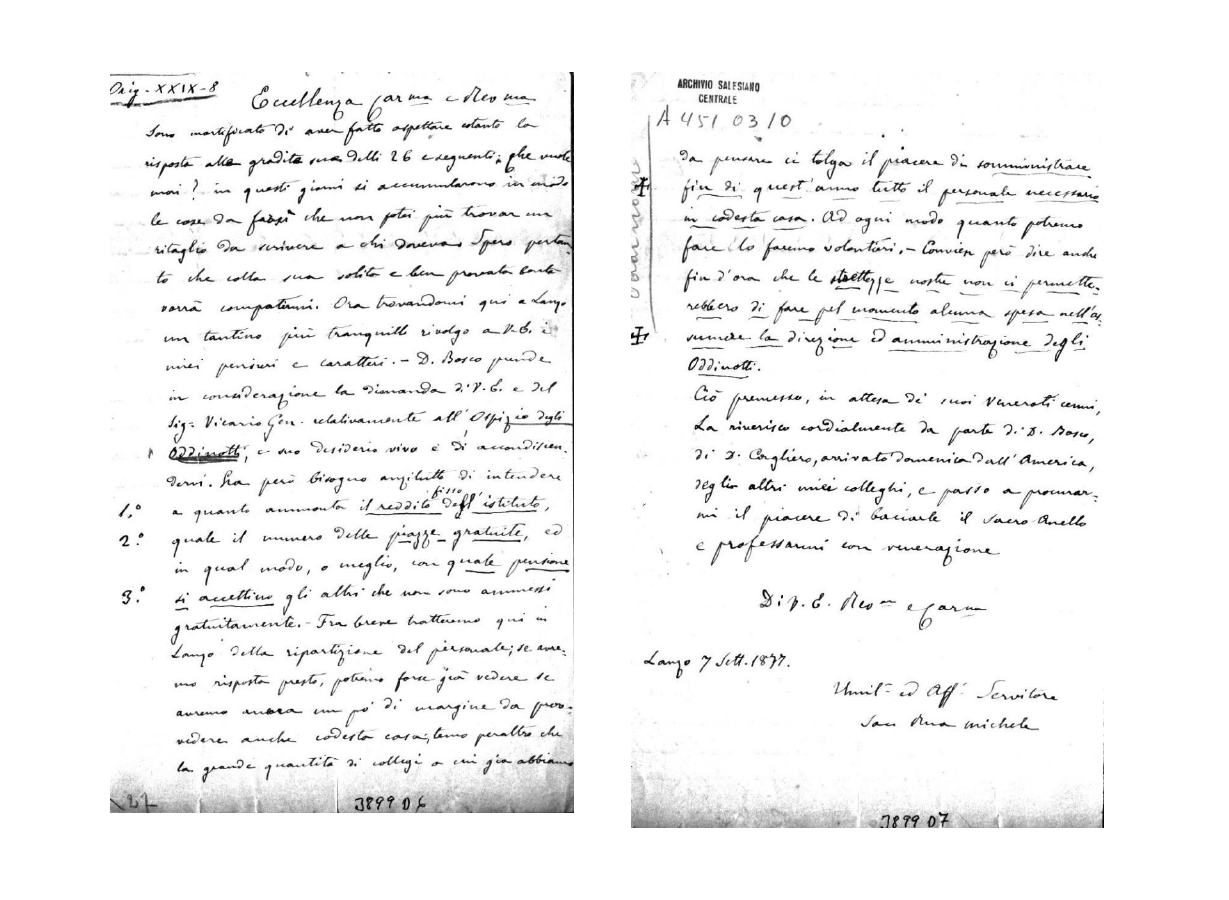 Orig - XXIX-8
Eccellenza Carma e Rev ma
Sono mortificato di aver fatto aspettare cotanto la
risposta alla gradita sua delli 26 e seguenti; che vuole
mai? in questi giorni si accumularono in modo
le cose da farsi che non potei più trovar un
ritaglio da scrivere a chi doveva. Spero pertan-
to che colla sua solita e ben provata bontà
vorrà compatirmi. Ora trovandomi qui a Lanzo
un tantino più tranquillo rivolgo a V.E. i
miei pensieri e caratteri. - D. Bosco prende
in considerazione la dimanda di V.E. e del
Sig. Vicario Gen. relativamente all' Ospizio degli
Oddinotti, e suo desiderio vivo è di accondiscen-
dervi. Fra però bisogno anzitutto di intendere
1.° a quanto ammonta il reddito fisso dell' istituto,
2.° quale il numero delle piazze gratuite, ed
in qual modo, o meglio, con quale pensione
3.° si accettino gli altri che non sono ammessi
gratuitamente. - Fra breve tratteremo qui in
Lanzo della ripartizione del personale; se avre-
mo risposta presto, potremo forse già vedere se
avremo ancora un po' di margine da prov-
vedere anche codesta casa; temo peraltro che
la grande quantità di collegi a cui già abbiamo
27
3899 D6
ARCHIVIO SALESIANO
CENTRALE
A 451 03 10
da pensare ci tolga il piacere di somministrare
fin di quest' anno tutto il personale necessario
in codesta casa. Ad ogni modo quanto potremo
fare lo faremo volontieri. - Convien però dire anche
fin d'ora che le strettezze nostre non ci permette-
rebbero di fare pel momento alcuna spesa nell'as-
sumere la direzione ed amministrazione degli
Oddinotti.
Ciò premesso, in attesa di suoi venerati cenni,
La riverisco cordialmente da parte di D. Bosco,
di D. Cagliero, arrivato domenica dall' America,
degli altri miei colleghi, e passo a procurar-
mi il piacere di baciarle il Sacro Anello
e professarmi con venerazione
Di V. E. Rev ma e Carma
Lanzo 7 Sett. 1877.
Umil.° ed Aff.° Servitore
Sac Rua Michele
3899 D7